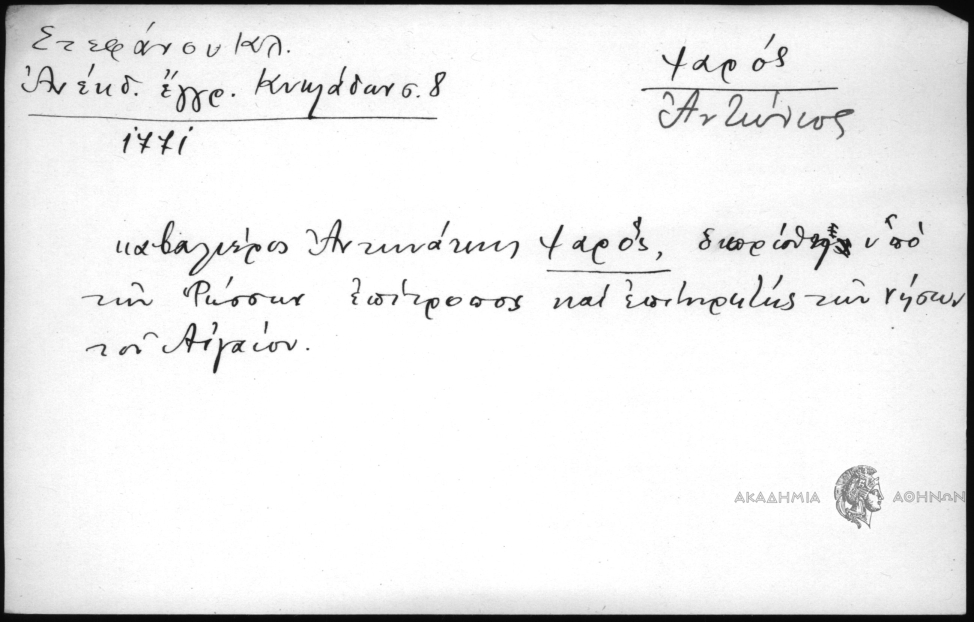 Στεφάνου Κλ.
Ἀνέκδ. ἔγγρ. Κυκλάδων σ. 8
1771
Ψαρός
Ἀντώνιος
καβαλιέρος Ἀντωνάκης Ψαρός, διορισθεὶς ὑπὸ
τῶν Ρώσσων ἐπίτροπος καὶ ἐπιστατὴς τῶν νήσων
τοῦ Αἰγαίου.
ΑΚΑΔΗΜΙΑ ΑΘΗΝΩΝ